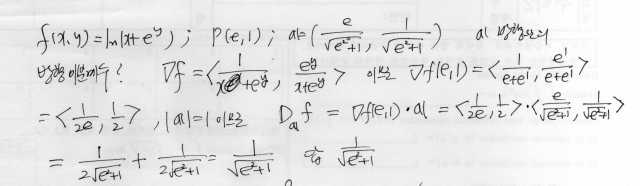 f(x,y)=ln|x+e^y| ; P(e,1) ; a=(e/√(e²+1), 1/√(e²+1)) a 방향으로의
방향미분계수? ∇f=<1/(x+e^y), e^y/(x+e^y)> 이므로 ∇f(e,1)=<1/(e+e¹), e¹/(e+e¹)>
=<1/2e, 1/2>, |a|=1 이므로 D_a f = ∇f(e,1)·a = <1/2e, 1/2>·<e/√(e²+1), 1/√(e²+1)>
= 1/(2√(e²+1)) + 1/(2√(e²+1)) = 1/√(e²+1) 답 1/√(e²+1)